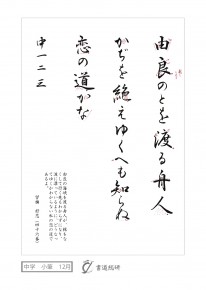 由良のとを渡る舟人
かぢを絶えゆくへも知らぬ
恋の道かな
中一 二 三
中学 小筆 12月
書道総研